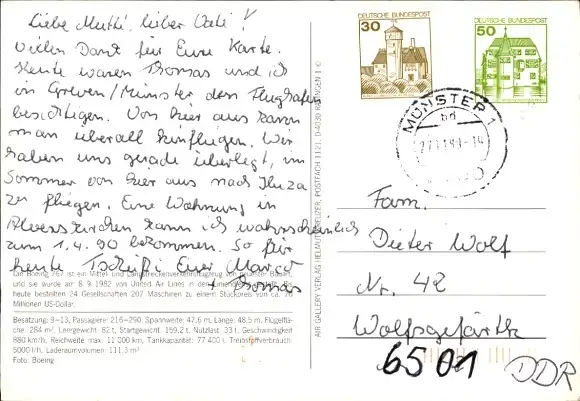 Liebe Mutti, lieber Vati!
Vielen Dank für Eure Karte.
Heute waren Thomas und ich
in Greven/Münster den Flughafen
besichtigen. Von hier aus kann
man überall hinfliegen. Wir
haben uns gerade überlegt, im
Sommer von hier aus nach Ibiza
zu fliegen. Eine Wohnung in
kann ich wahrscheinlich
zum 1.4.90 bekommen. So für
heute Tschüß! Eure Margot
+ Thomas
Die Boeing 767 ist ein Mittel- und Langstreckenverkehrsflugzeug von
und sie wurde am 8. 9. 1982 von United Air Lines in den
heute bestellten 24 Gesellschaften 207 Maschinen zu einem Stückpreis von ca. 76
Millionen US-Dollar.
Besatzung: 9–13, Passagiere: 216–290, Spannweite: 47,6 m, Länge: 48,5 m, Flügelflä-
che: 284 m², Leergewicht: 82 t, Startgewicht: 159,2 t, Nutzlast: 33 t, Geschwindigkeit
880 km/h, Reichweite max. 11 000 km, Tankkapazität: 77 400 l, Treibstoffverbrauch:
5000 l/h, Laderaumvolumen: 111,3 m³
Foto: Boeing
AIR GALLERY VERLAG HELMUT KREUZER, POSTFACH 1121, D-4030 RATINGEN 1 ©
DEUTSCHE BUNDESPOST
30
DEUTSCHE BUNDESPOST
50
MÜNSTER 1
bd
Fam.
Dieter Wolf
Nr. 42
Wolfsgefärth
6501
DDR